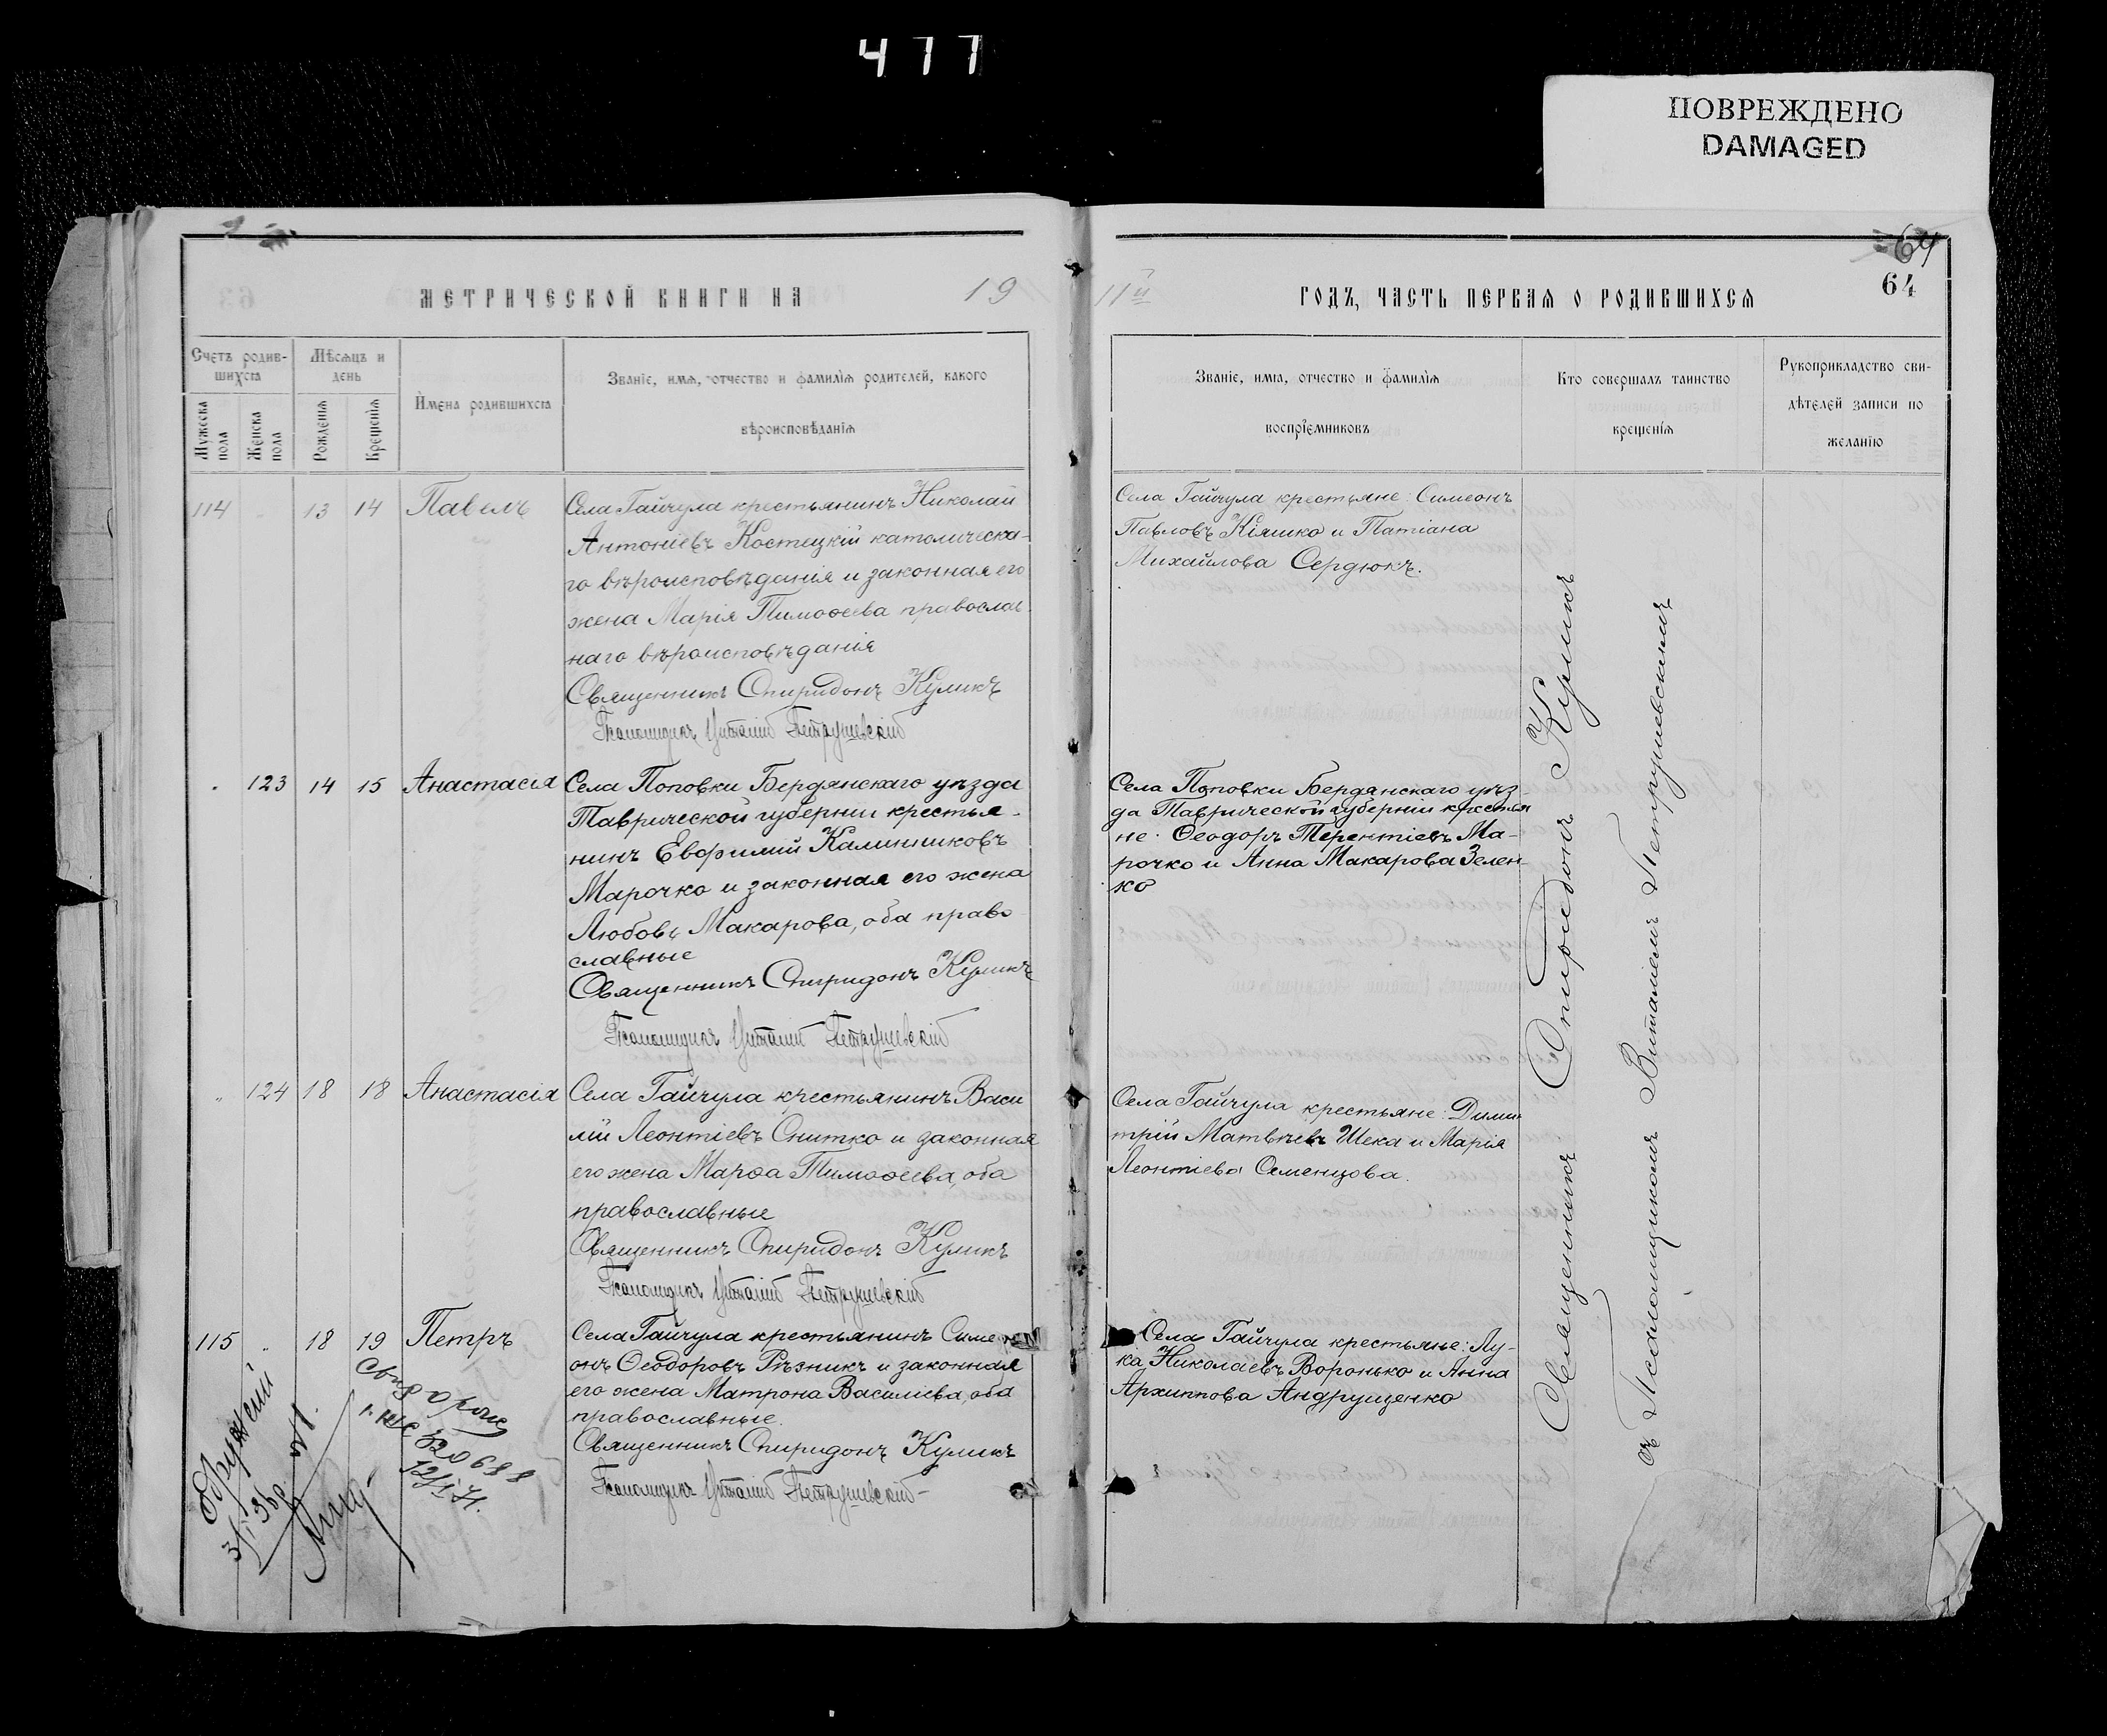 477
ПОВРЕЖДЕНО
DAMAGED
64
64
МЕТРИЧЕСКОЙ КНИГИ НА 19
11й ГОДЪ, ЧАСТЬ ПЕРВАЯ О РОДИВШИХСЯ
Счетъ родив-
шихся
Мужеска
пола
Женска
пола
Мѣсяцъ и
день
Рожденія
Крещенія
Имена родившихся
Званіе, имя, отчество и фамилія родителей, какого
вѣроисповѣданія
Званіе, имя, отчество и фамилія
воспріемниковъ
Кто совершалъ таинство
крещенія
Рукоприкладство сви-
дѣтелей записи по
желанію
114 13 14 Павелъ
Села Гайчула крестьянинъ Николай
Антоніевъ Костецкій католическа-
го вѣроисповѣданія и законная его
жена Марія Тимоѳеева православ-
наго вѣроисповѣданія
Священникъ Спиридонъ Куликъ
Псаломщикъ Виталій Петрушевскій
Села Гайчула крестьяне: Симеонъ
Павловъ Кіяшко и Татіана
Михайлова Сердюкъ.
123 14 15 Анастасія
Села Поповки Бердянскаго уѣзда
Таврической губерніи крестья-
нинъ Евфимій Калинниковъ
Марочко и законная его жена
Любовь Макарова, оба право
славные
Священникъ Спиридонъ Куликъ
Псаломщикъ Виталій Петрушевскій
Села Поповки Бердянскаго уѣз-
да Таврической губерніи крестья
не: Ѳеодоръ Терентіевъ Ма-
рочко и Анна Макарова Зелен-
ко
124 18 18 Анастасія
Села Гайчула крестьянинъ Васи
лій Леонтіевъ Снитко и законная
его жена Марѳа Тимоѳеева, оба
православные
Священникъ Спиридонъ Куликъ
Псаломщикъ Виталій Петрушевскій
Села Гайчула крестьяне: Дими
трій Матвѣевъ Шека и Марія
Леонтіева Семенцова.
115 18 19 Петръ
Села Гайчула крестьянинъ Симе
онъ Ѳеодоровъ Рѣзникъ и законная
его жена Матрона Василіева, оба
православные.
Священникъ Спиридонъ Куликъ
Псаломщикъ Виталій Петрушевскій
Села Гайчула крестьяне: Лу-
ка Николаевъ Воронько и Анна
Архиппова Андрущенко
Священникъ Спиридонъ Куликъ
съ Псаломщикомъ Виталіемъ Петрушевскимъ